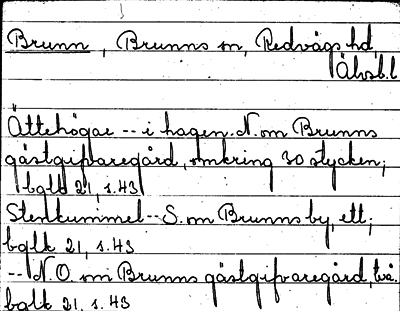 Brunn, Brunns sn, Redvägs hd,
Älvsb.l
Ättehögar -- i hagen N. om Brunns
gästgivaregård, omkring 30 stycken;
bglk 21, s.43
Stenkummel -- S. om Brunns by, ett;
bglk 21, s.43
-- N.O. om Brunns gästgivaregård, två.
bglk 21, s.43